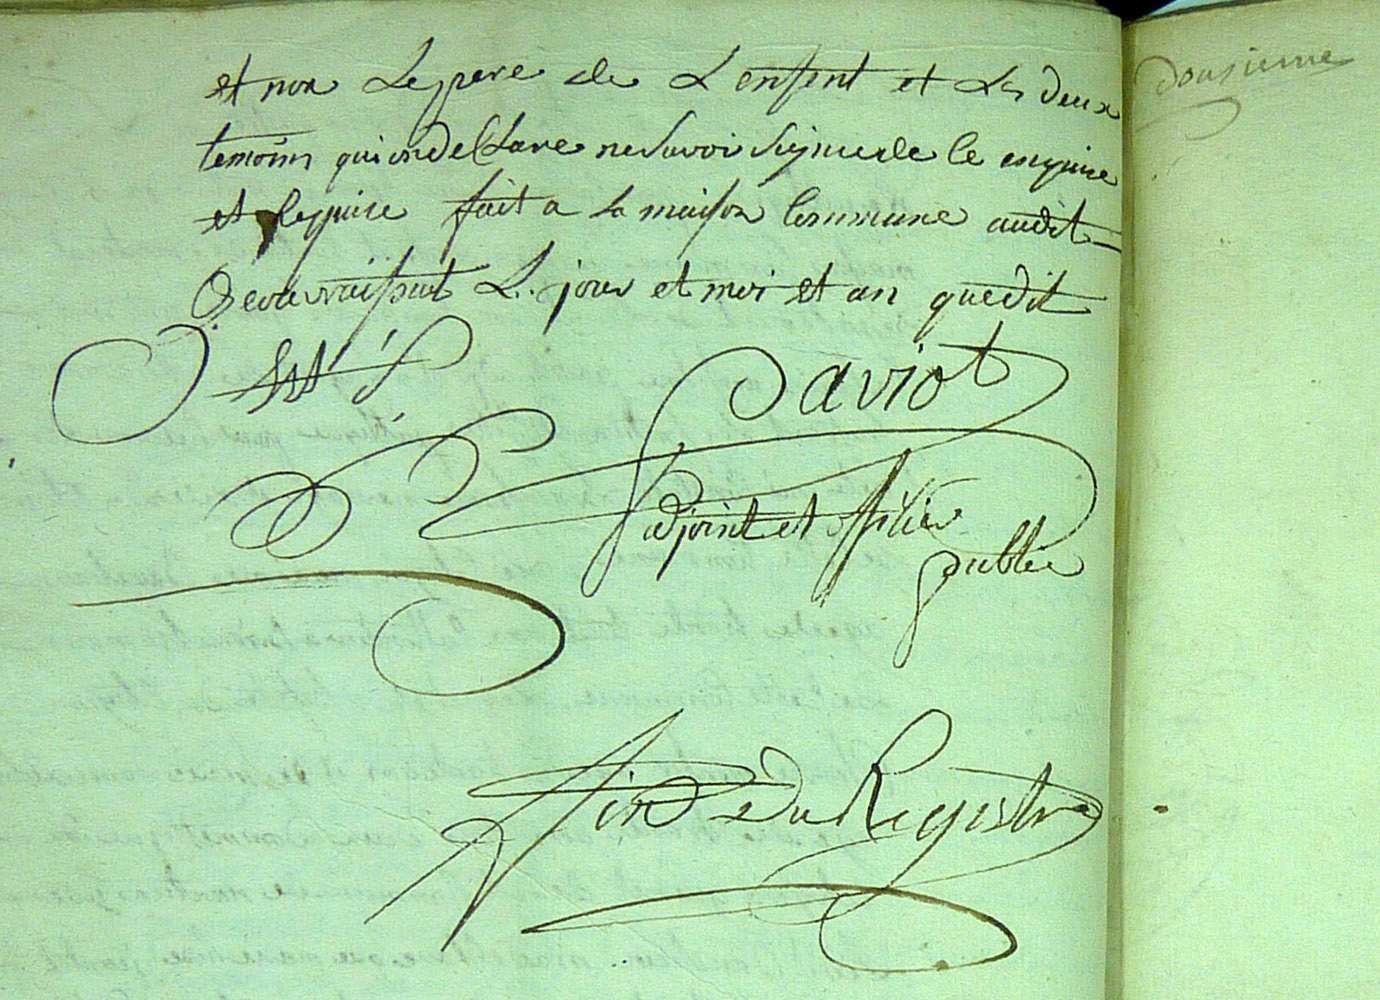 et non Le pere de L'enfent et Les deux
temoins qui on declare ne Savoir Signe de ce enquire
et Require fait a La maison Commune audit
Le jour et moi et an que dit
Daviot
adjoint et officier
public
fin du Registre
Dousieme